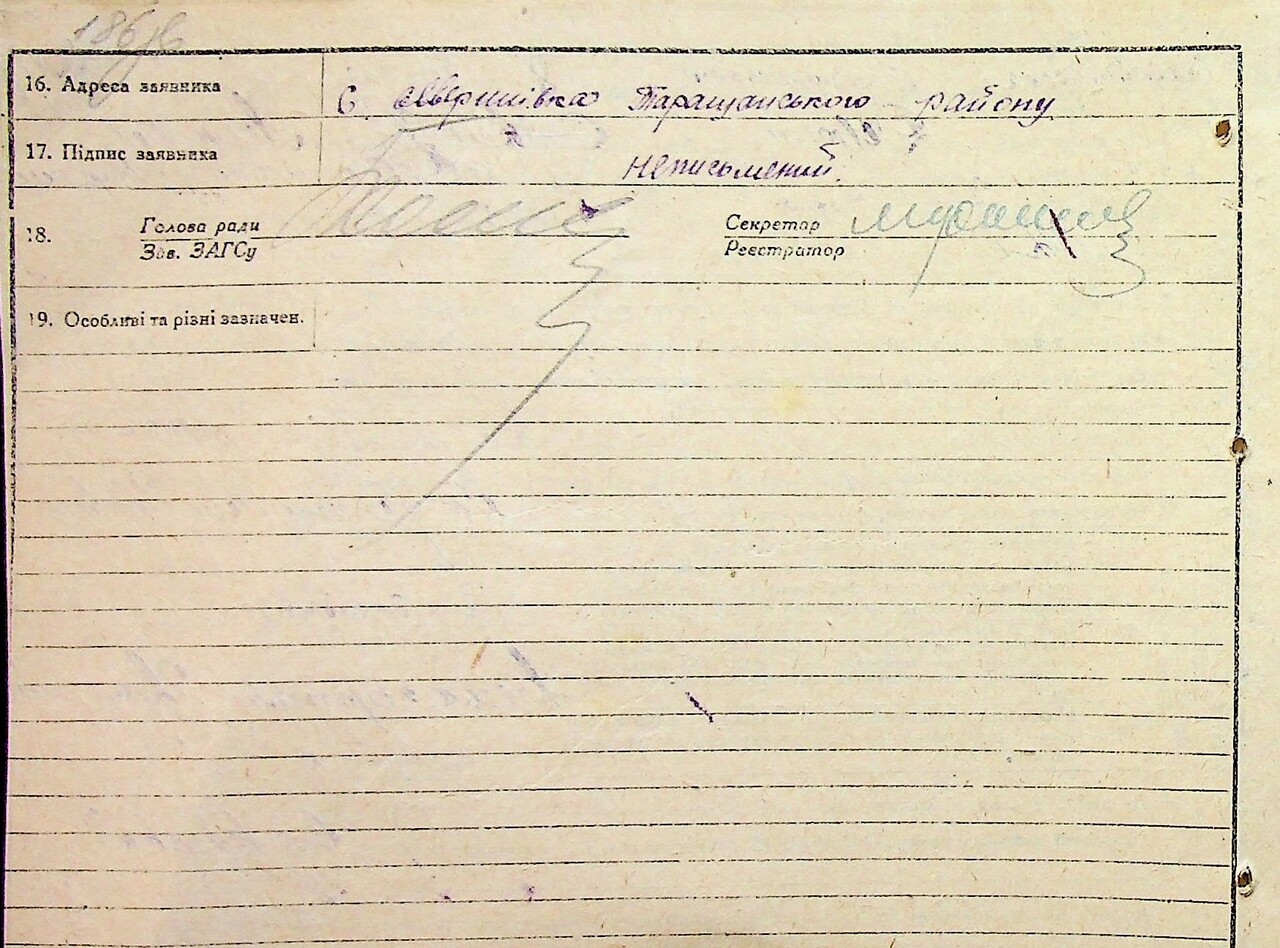 16. Адреса заявника С. Лвершківка Таращанського району
17. Підпис заявника неписьмений.
18. Голова ради
Зав. ЗАГСу
Секретар
Реєстратор
19. Особливі та різні зазначен.